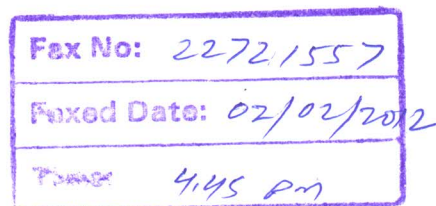 Fax No: 22721557
Faxed Date: 02/02/2012
Time: 4.45 pm